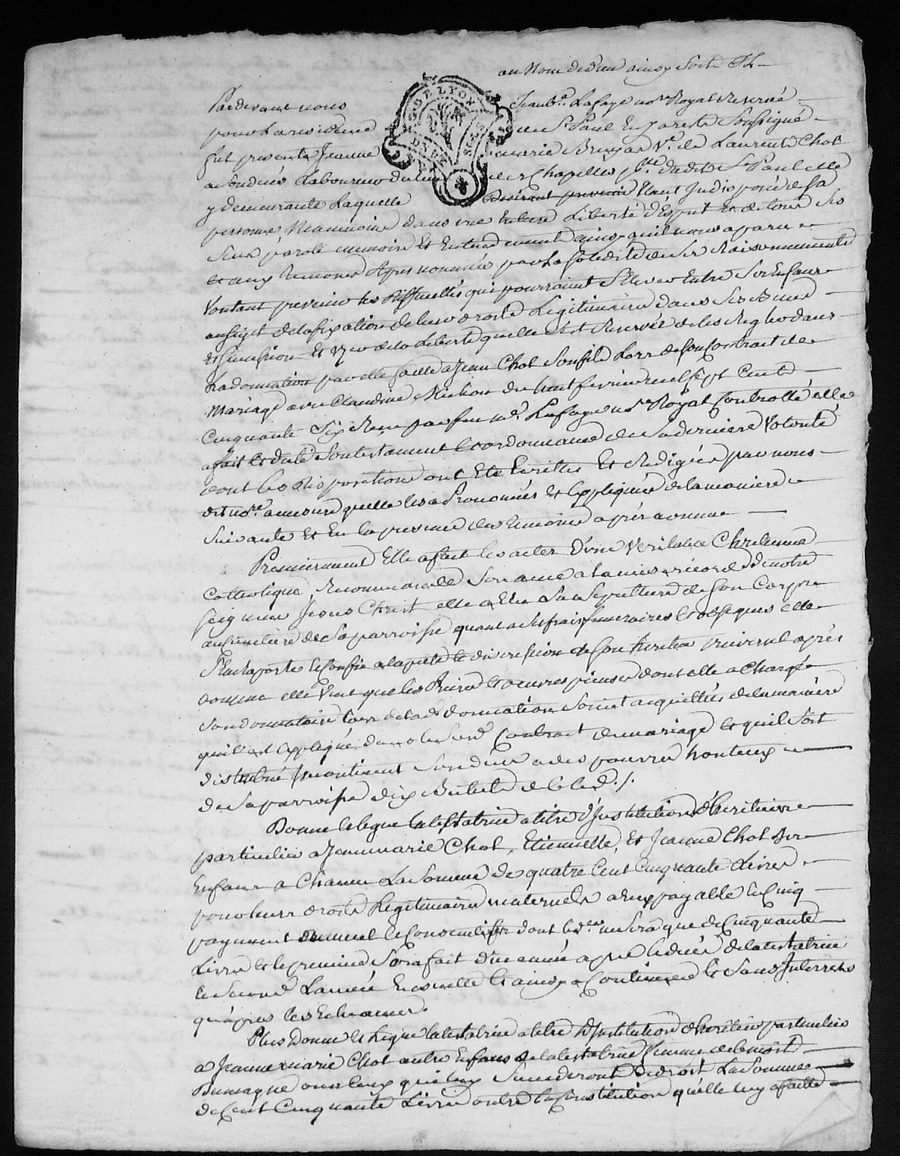 au Nom de dieu ainsy soit Il
Pardevant nous Jean Bte Lafaye nore Royal Reservé
pour la residence en St Paul En Jarest Soussigné
fut presente Jeanne marie Vve de Laurent Chol
a son deces Laboureur du lieu des Chapelles psse dudit St Paul elle
y demeurante Laquelle Etant Indisposée de sa
personne Neanmoins dans une Entiere Liberté d'Esprit Et de tous ses
Sens parole memoire Et Entendement ainsy quil nous a paru
et aux temoins Apres nommés par la solidité de ses Raisonnements
Voulant prevenir les difficultés qui pourraient S'Elever Entre Ses Enfans
au sujet de la fixation de leurs droits Legitimaires dans Ses Biens
et succession Et user de la Liberté quelle s'est Reservée de les Regler dans
La donnation par elle faitte a Jean Chol Son fils Lors de son Contrait de
Mariage avec Claudine du huit fevrier mil sept Cent
Cinquante Six Reçu par feu me Lafaye nre Royal Controllé elle
a fait et dicté Son testament et ordonnance de Sa derniere Volonté
dont les dispositions ont Eté Ecrittes Et Redigées par nous
dit nore a mesure quelle les a Prononcées et Expliquées de la maniere
Suivante et En la presence des temoins apres nommés
Premierement Elle a fait les actes d'une Veritable Chretienne
Catholique Recommandé Son ame a la misericorde de notre
Seigneur Jesus Christ elle a Elu La Sepulture de Son Corps
au cimetiere de Sa parroisse quant a Ses frais funeraires et obseques elle
S'En raporte et Confie a la pieté et discretion de Son heritier universel après
nommé elle Veut que les Prieres et oeuvres pieuses dont elle a Chargé
Son donnataire lors de lade donnation Soient acquittées de la maniere
quil est Expliqué dans le Susd Contrait de mariage et quil Soit
distribué Incontinent Son deces a des pauvres honteux
de Sa parroisse dix Bichets de bled /.
Donne et legue la testatrice a titre d'Institution d'heritiere
particuliere a Jeanmarie Chol, Etiennette, Et Jeanne Chol Ses
Enfans a Chacun La Somme de quatre Cent Cinquante Livres
pour leurs droits Legitimaires maternels a Eux payable En Cinq
payements annuels et Consecutifs dont le Ier ne sera que de Cinquante
Livres et le premier Sera fait d'une année apres le deces de la testatrice
le Second L'année Ensuitte Et ainsy a Continuer et Sans Interrets
qu'après les Echeances
Plus Donne et Legue la testatrice a titre d'Institution d'heritiere particuliere
a Jeanne marie Chol autre Enfans de la testatrice femme de benoit
Dumagne ou a Ceux qui luy Succederont de droit La Somme
de Cent Cinquante Livres outre la Constitution quelle luy a faitte